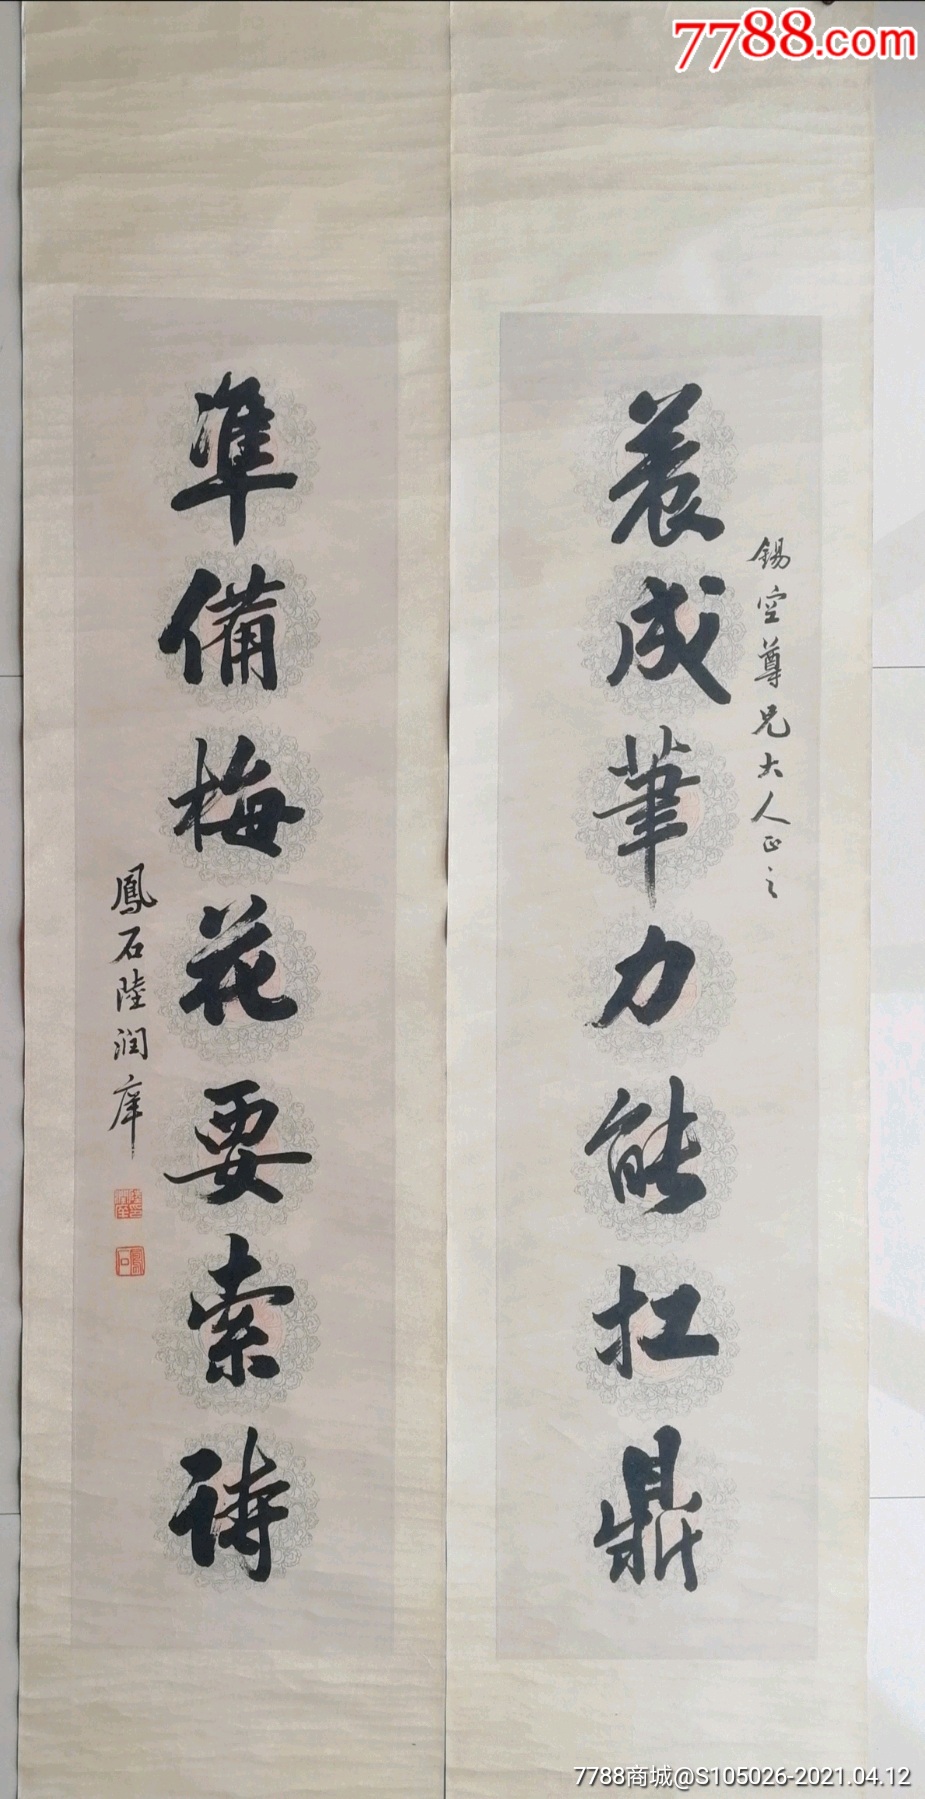 7788.com
錫空尊兄大人正之
養成筆力能扛鼎
準備梅花要索詩
鳳石陸润庠
7788商城@S105026-2021.04.12